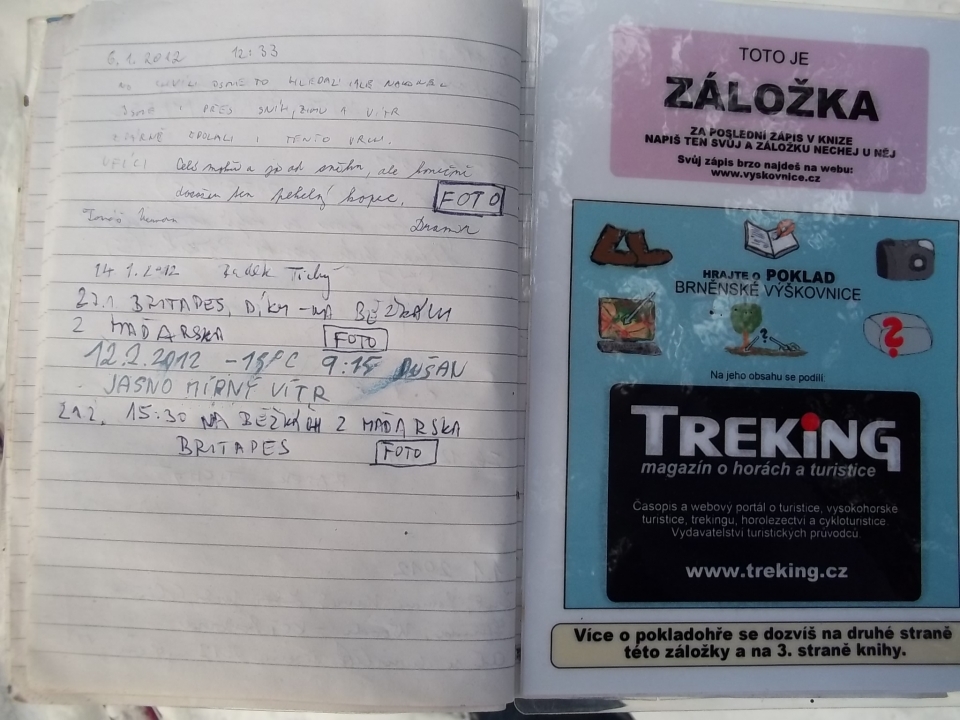 6.1.2012 12:33
JSME TO HLEDALI ALE NAKONEC
JSME I PŘES SNÍH, ZIMU A VÍTR
ZDÁRNĚ ZDOLALI I TENTO VRCH.
od sněhu, ale konečně
kopec. FOTO
Tomáš
14.1.2012 Radek Tichý
27.1 BRITAPES, DÍKY - NA BĚŽKÁCH
Z MAĎARSKA FOTO
12.2.2012 -15°C 9:15 DUŠAN
JASNO MÍRNÝ VÍTR
21.2. 15:30 NA BĚŽKÁCH Z MAĎARSKA
BRITAPES FOTO
TOTO JE
ZÁLOŽKA
ZA POSLEDNÍ ZÁPIS V KNIZE
NAPIŠ TEN SVŮJ A ZÁLOŽKU NECHEJ U NĚJ
Svůj zápis brzo najdeš na webu:
www.vyskovnice.cz
HRAJTE O POKLAD
BRNĚNSKÉ VÝŠKOVNICE
Na jeho obsahu se podílí:
TREKiNG
magazín o horách a turistice
Časopis a webový portál o turistice, vysokohorské
turistice, trekingu, horolezectví a cykloturistice.
Vydavatelství turistických průvodců.
www.treking.cz
Více o pokladohře se dozvíš na druhé straně
této záložky a na 3. straně knihy.